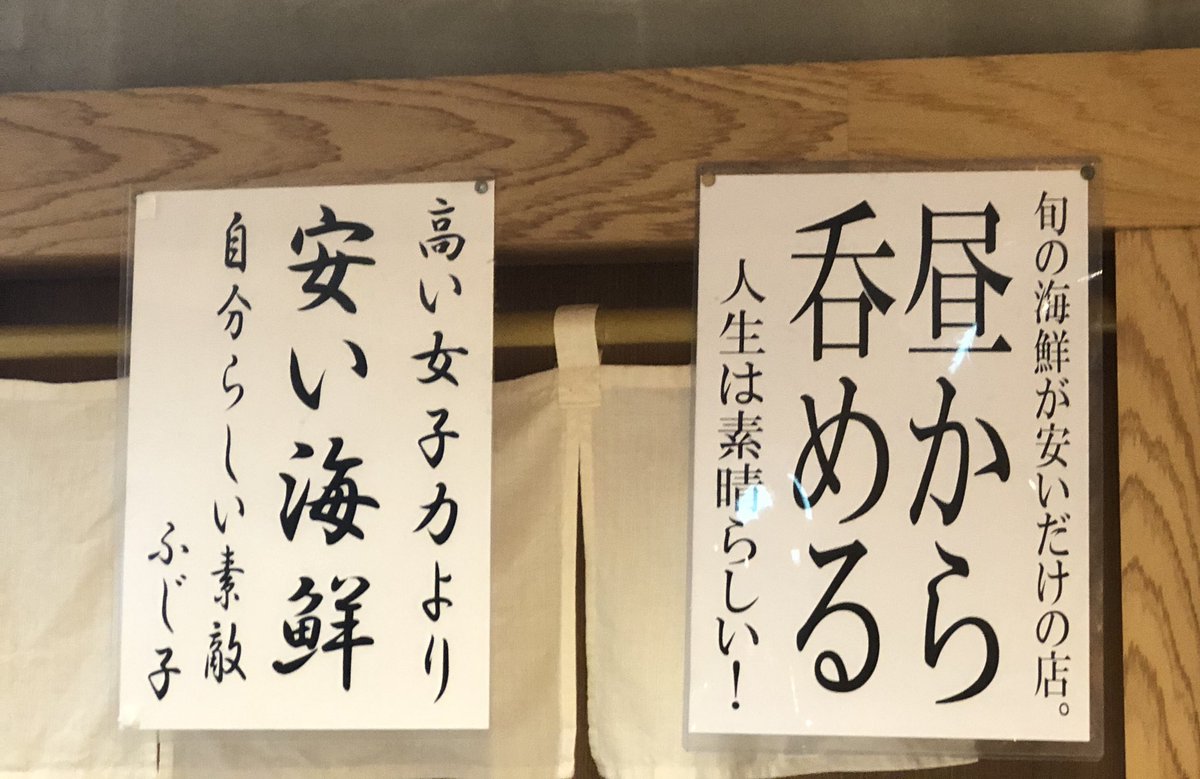 旬の海鮮が安いだけの店。
昼から
呑める
人生は素晴らしい!
高い女子力より
安い海鮮
自分らしい素敵
ふじ子